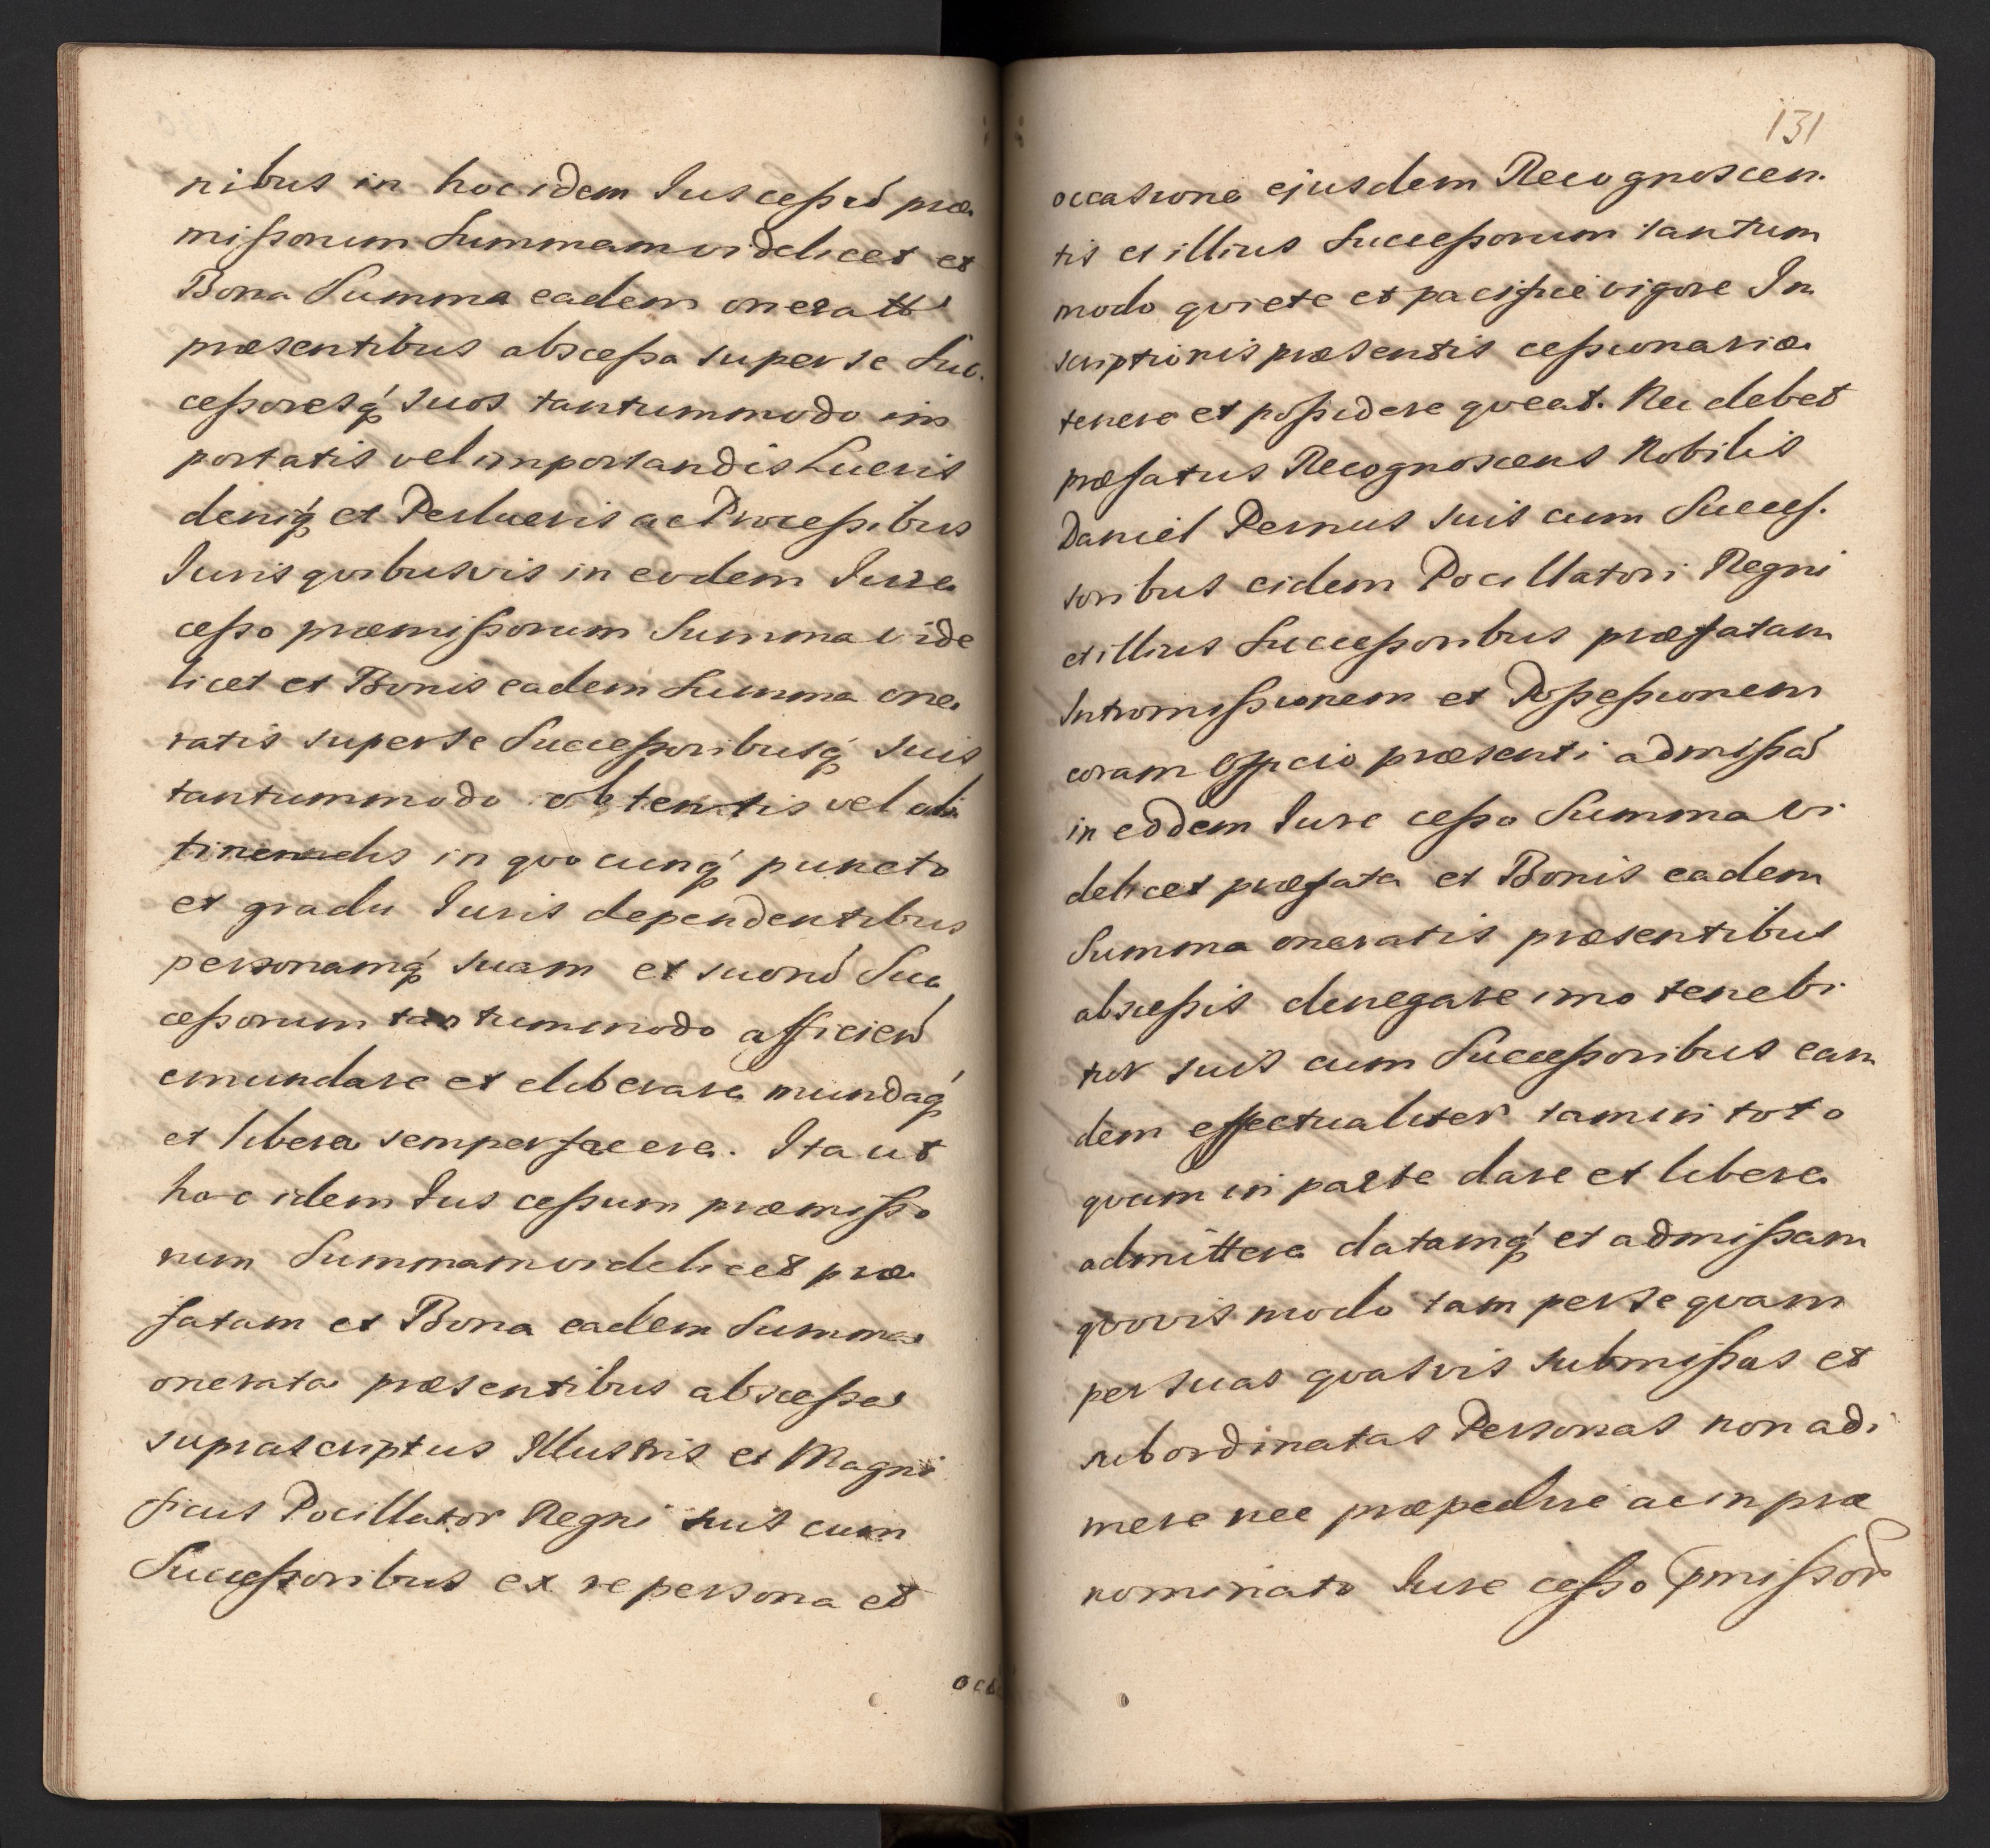 nibus in hoc idem Jus cessũ præ
missorum Summam videlicet et
Bona Summa eadem oneratt
præsentibus abscessa super se Suc
cessoresq́ suos tantummodo im
portatis vel importandis Lucris
deniq́ et Perlucris ac Processibus
Juris quibusvis in eodem Jure
cesso præmissorum Summa vide
licet et Bonis eadem Summa one
ratis super se Successoribusq́ suis
tantummodo obtentis vel ob
tinendis in quocunq́ puncto
et gradu Juris dependentibus
personamq́ suam et suorũ Suc
cessorum tantummodo afficien̄
emundare et eliberare mundaq́
et libera semper facere. Ita ut
hoc idem Jus cessum præmisso
rum Summam videlicet præ
fatam et Bona eadem Summa
onerata præsentibus abscessa
suprascriptus Illustris et Magni
ficus Pocillator Regni suis cum
Successoribus ex re persona et
occa
131
occasione ejusdem Recognoscen
tis et illius Successorum tantum
modo quiete et pacifice vigore In
scriptionis præsentis cessionariæ
tenere et possidere queat. Nec debet
præfatus Recognoscens Nobilis
Daniel Pernus suis cum Succes
soribus eidem Pocillatori Regni
et illius Successoribus præfatam
Intromissionem et Possessionem
coram Officio præsenti admissã
in eodem Jure cesso Summa vi
delicet præfata et Bonis eadem
Summa oneratis præsentibus
abscessis denegare imo tenebi
tur suis cum Successoribus ean
dem effectualiter tam in toto
quam in parte dare et libere
admittere datamq́ et admissam
quovis modo tam per se quam
per suas quasvis submissas et
subordinatas Personas non adi
mere nec præpedire ac in præ
nominato Jure cesso pmissor̃